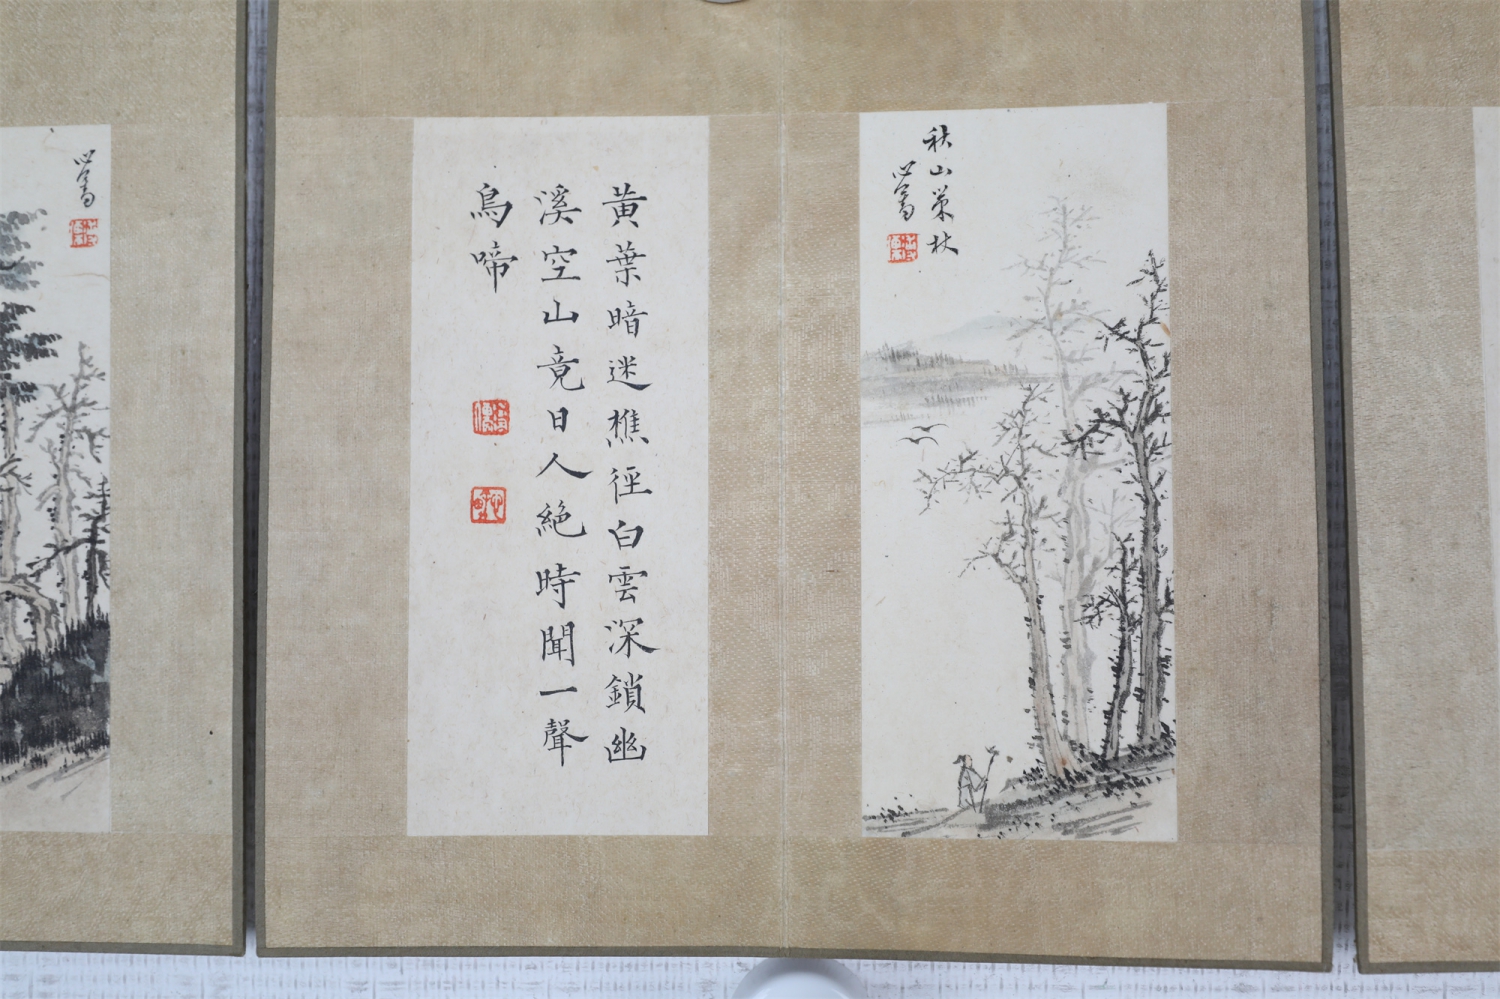 秋山策杖
心畬
黃葉暗迷樵徑白雲深鎖幽
溪空山竟日人絕時聞一聲
鳥啼
心畬